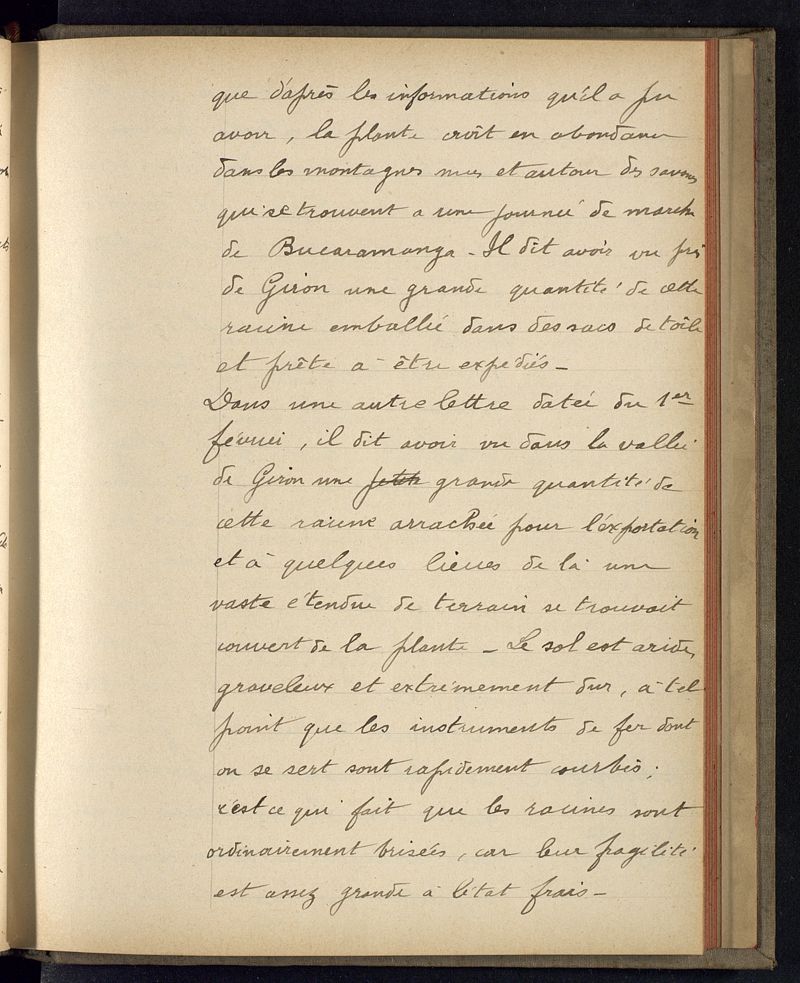 que d'après les informations qu'il a pu
avoir, la plante croît en abondance
dans les montagnes nues et autour des savanes
qui se trouvent a une journée de marche
de Bucaramanga - Il dit avoir vu près
de Giron une grande quantité de cette
racine emballée dans des sacs de toile
et prête à être expediés -
Dans une autre lettre datée du 1er
février, il dit avoir vu dans la vallée
de Giron une petite grande quantité de
cette racine arrachée pour l'exportation
et à quelques lieues de là une
vaste étendue de terrain se trouvait
couvert de la plante - Le sol est aride,
graveleux et extrémement dur, à tel
point que les instruments de fer dont
on se sert sont rapidement courbés ;
c'est ce qui fait que les racines sont
ordinairement brisées, car leur fragilité
est assez grande à l'état frais -